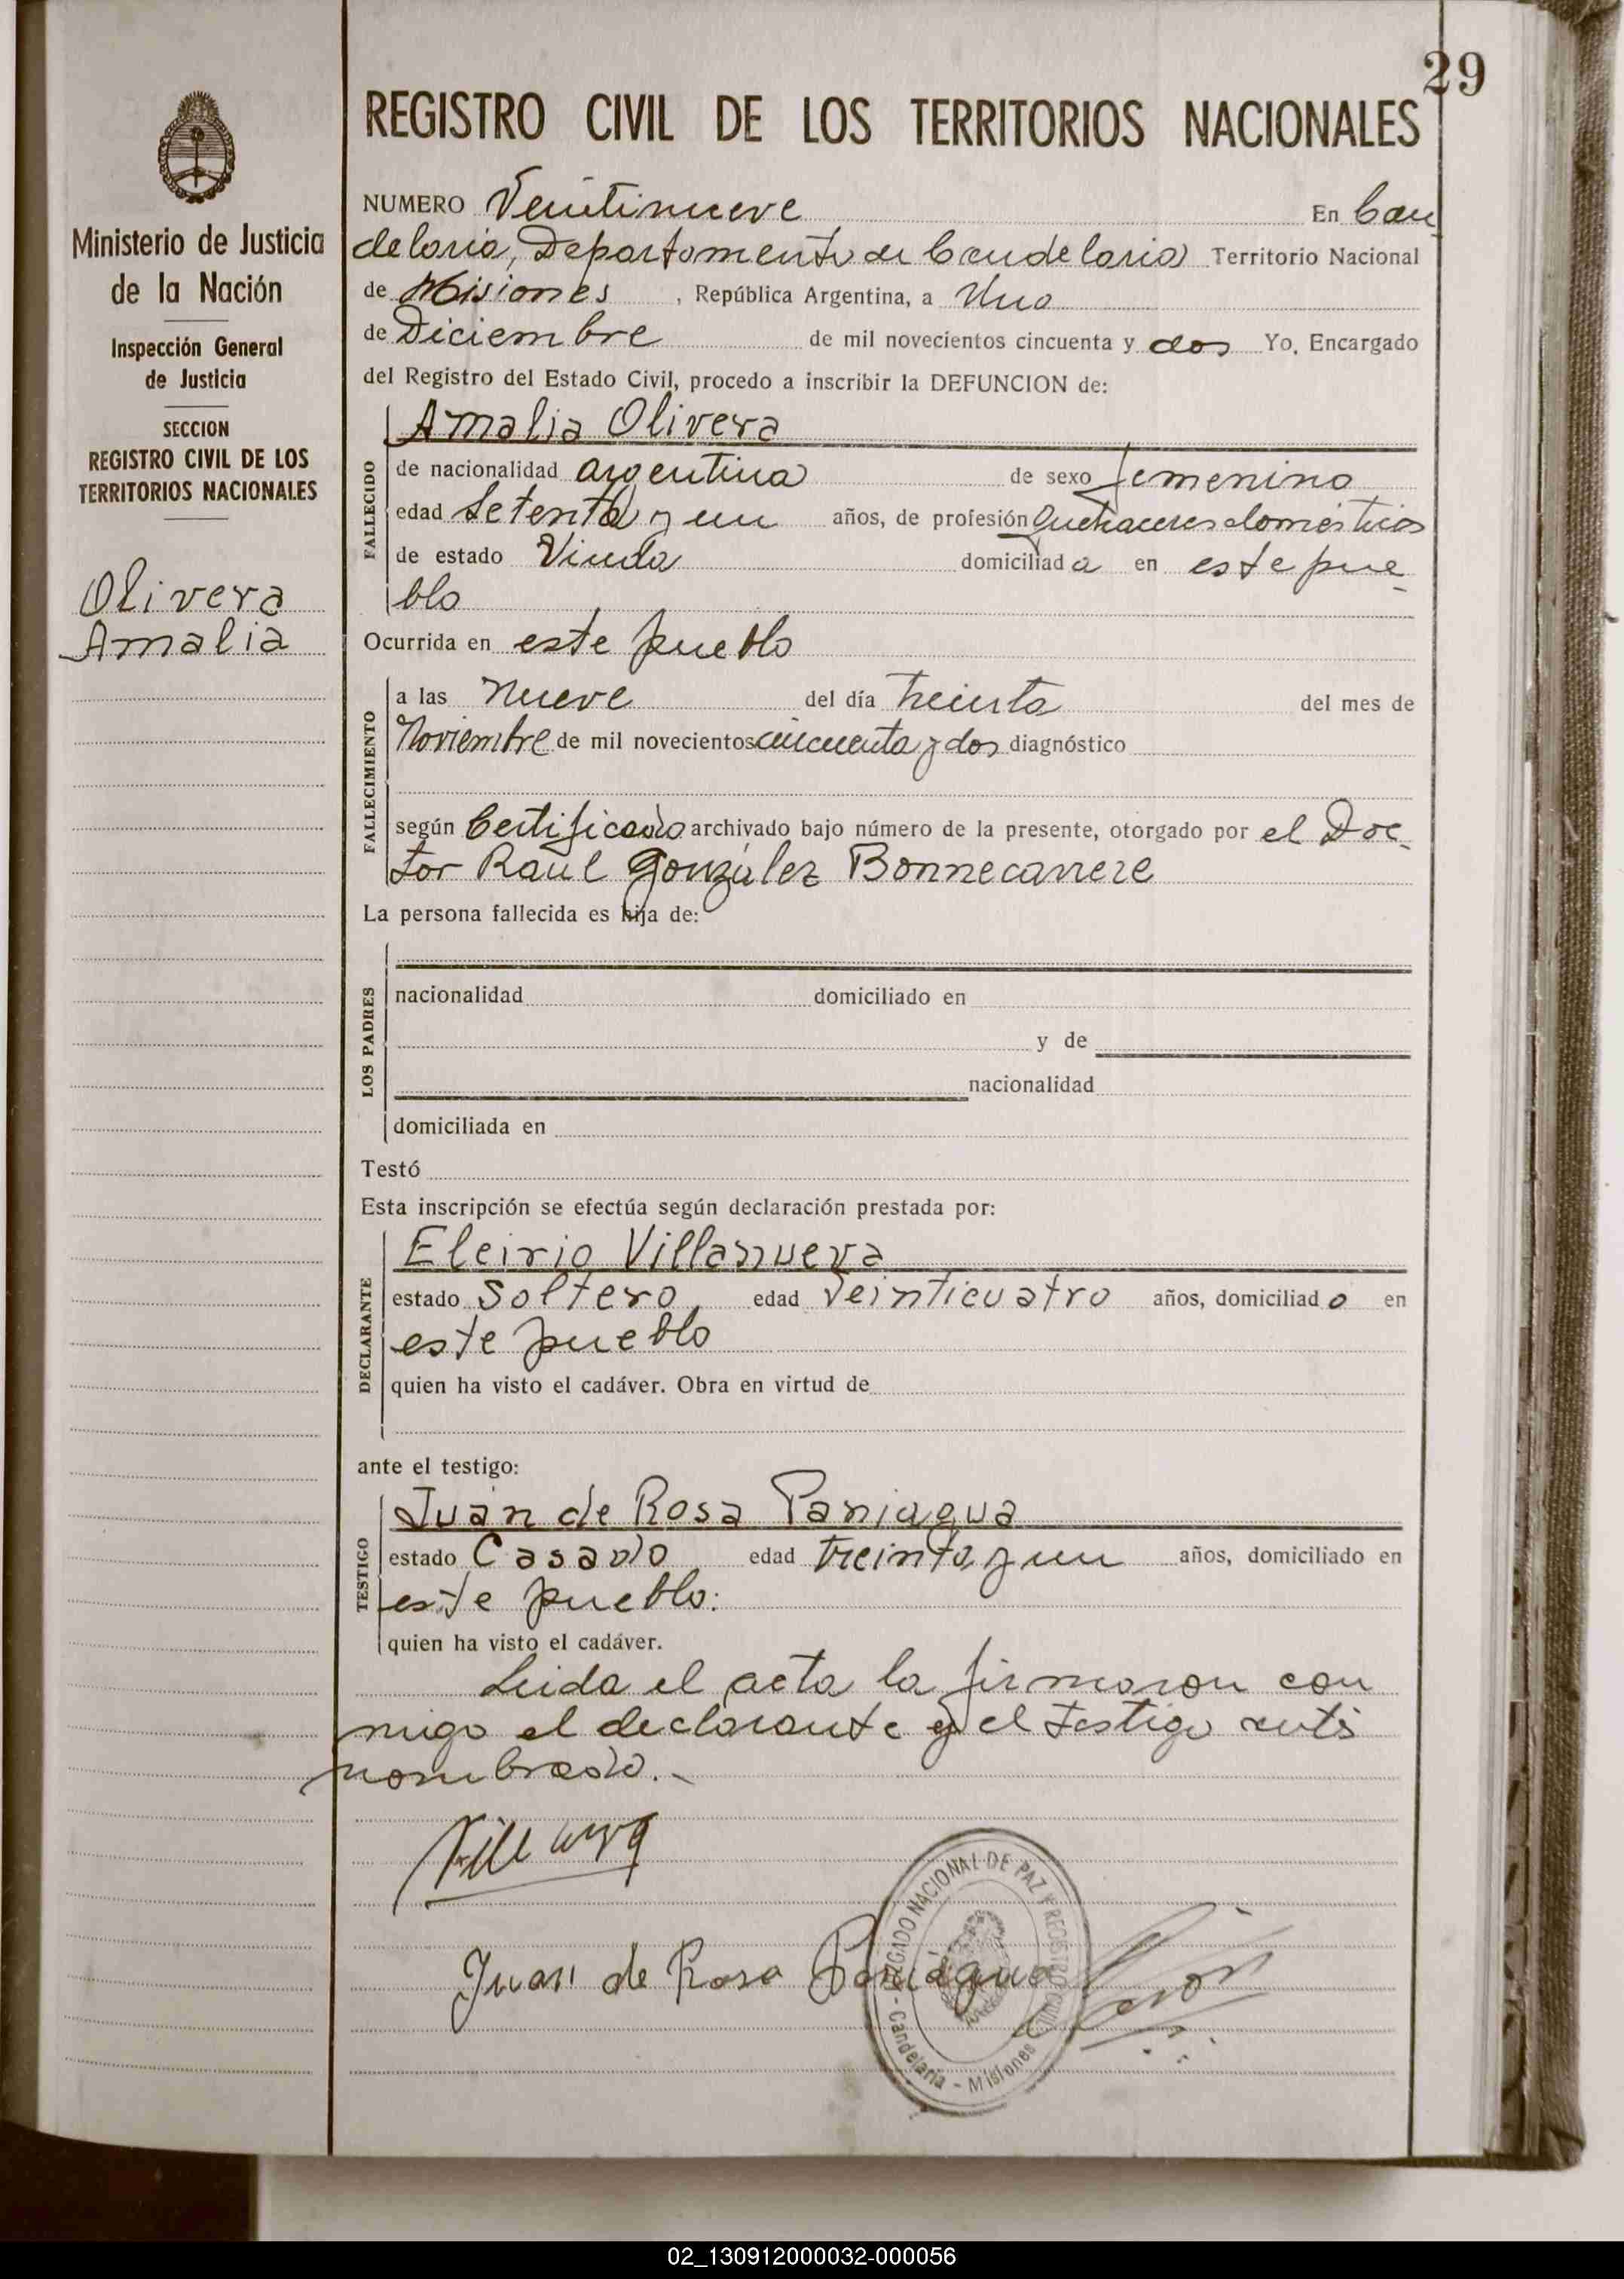 29
REGISTRO CIVIL DE LOS TERRITORIOS NACIONALES
Ministerio de Justicia
de la Nación
Inspección General
de Justicia
SECCION
REGISTRO CIVIL DE LOS
TERRITORIOS NACIONALES
Olivera
Amalia
NUMERO Veintinueve En Can
delaria, Departamento de Candelaria Territorio Nacional
de Misiones, República Argentina, a Uno
de Diciembre de mil novecientos cincuenta y dos Yo, Encargado
del Registro del Estado Civil, procedo a inscribir la DEFUNCION de:
Amalia Olivera
FALLECIDO
de nacionalidad argentina de sexo femenino
edad Setenta y un años, de profesión Quehaceres domésticos
de estado Viuda domiciliada en este pue-
blo
Ocurrida en este pueblo
FALLECIMIENTO
a las nueve del día treinta del mes de
Noviembre de mil novecientos cincuenta y dos diagnóstico
según Certificado archivado bajo número de la presente, otorgado por el Doc-
tor Raúl González Bonnecarrere
La persona fallecida es hija de:
LOS PADRES
nacionalidad domiciliado en
y de
nacionalidad
domiciliada en
Testó
Esta inscripción se efectúa según declaración prestada por:
DECLARANTE
Villanueva
estado Soltero, edad veinticuatro años, domiciliado en
este pueblo
quien ha visto el cadáver. Obra en virtud de
ante el testigo:
TESTIGO
Juan de Rosa Paniagua
estado Casado edad treinta y un años, domiciliado en
este pueblo:
quien ha visto el cadáver.
Leida el acta la firmaron con
migo el declarante y el testigo ante
nombrado.-
Juan de Rosa Paniagua
JUZGADO NACIONAL DE PAZ Y REGISTRO CIVIL
- Candelaria - Misiones
02_130912000032-000056